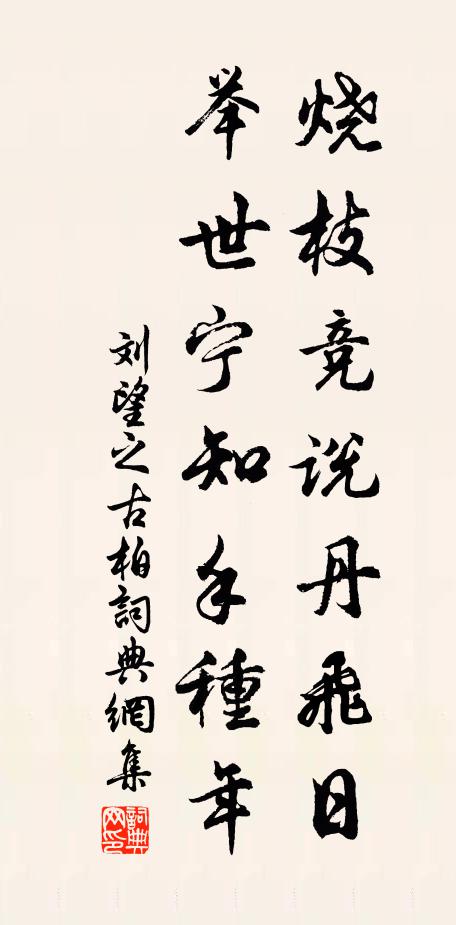 烧枝竞说丹飛日
举世宁知手種年
刘望之古柏詞典網集
詞典网印